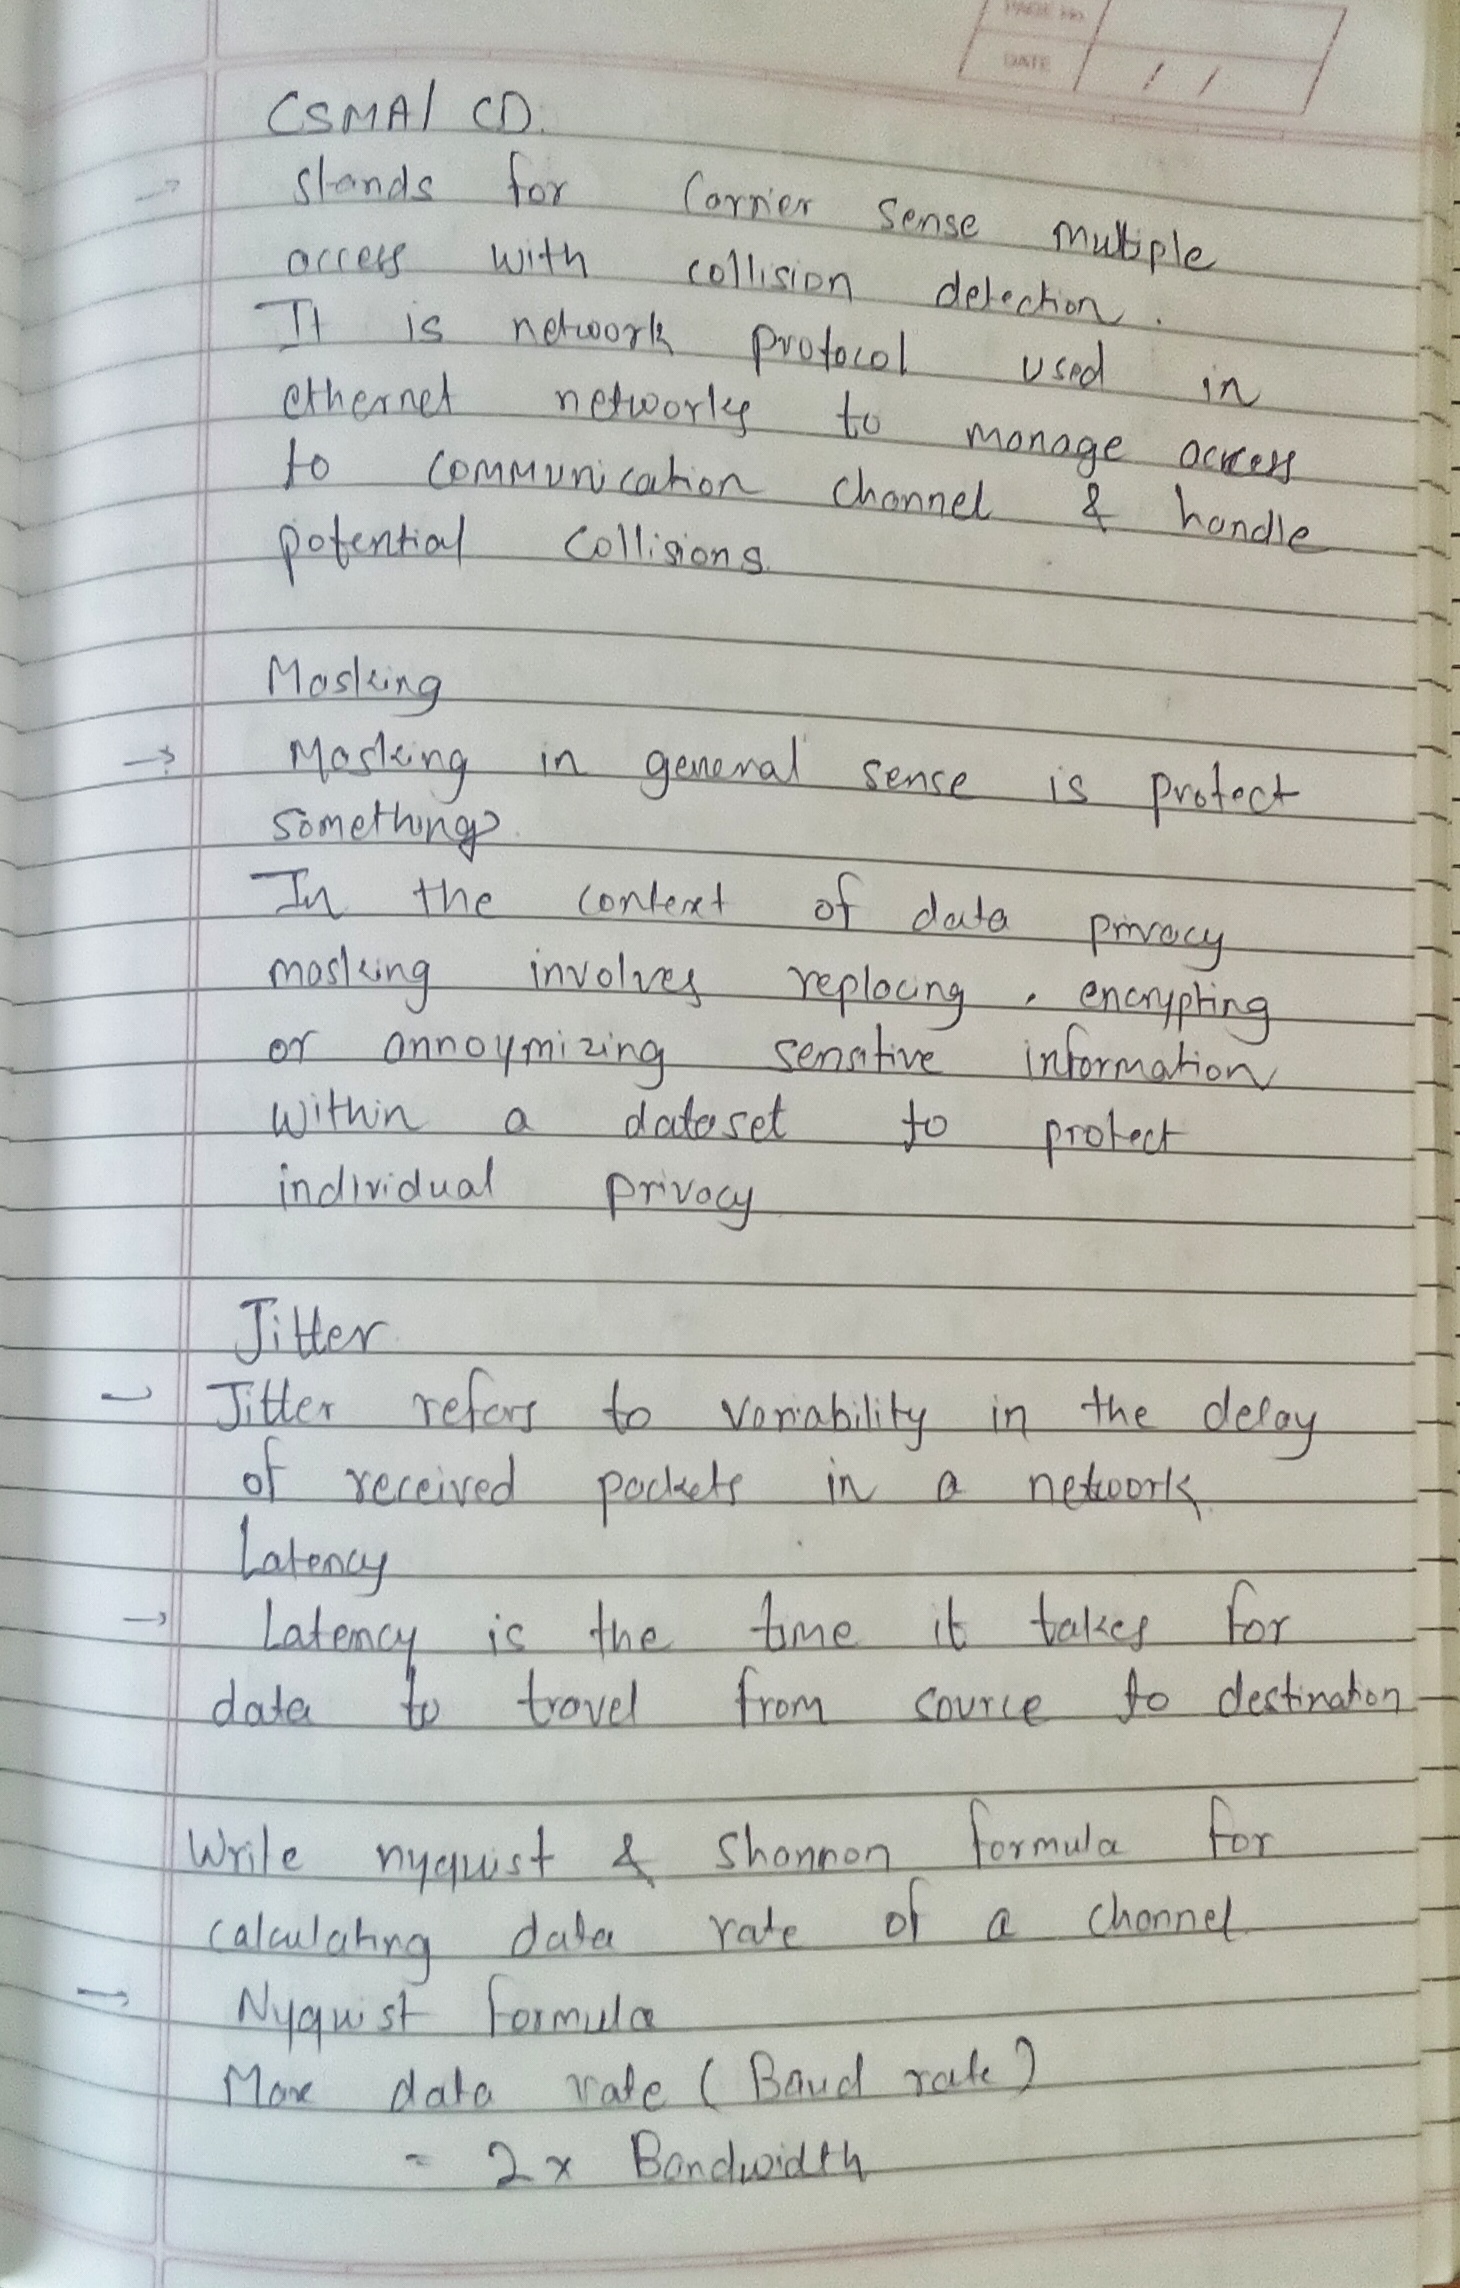 PAGE No.
DATE / /
CSMA/ CD.
→ stands for Carrier sense multiple
access with collision detection.
It is network protocol used in
ethernet networks to manage access
to communication channel & handle
potential collisions.
Masking
→ Masking in general sense is protect
something.
In the context of data privacy
masking involves replacing, encrypting
or annoymizing sensitive information
within a dataset to protect
individual privacy
Jitter
→ Jitter refers to variability in the delay
of received packets in a network.
Latency
→ Latency is the time it takes for
data to travel from source to destination
Write nyquist & Shannon formula for
calculating data rate of a channel
→ Nyquist formula
Max data rate (Baud rate)
= 2x Bandwidth